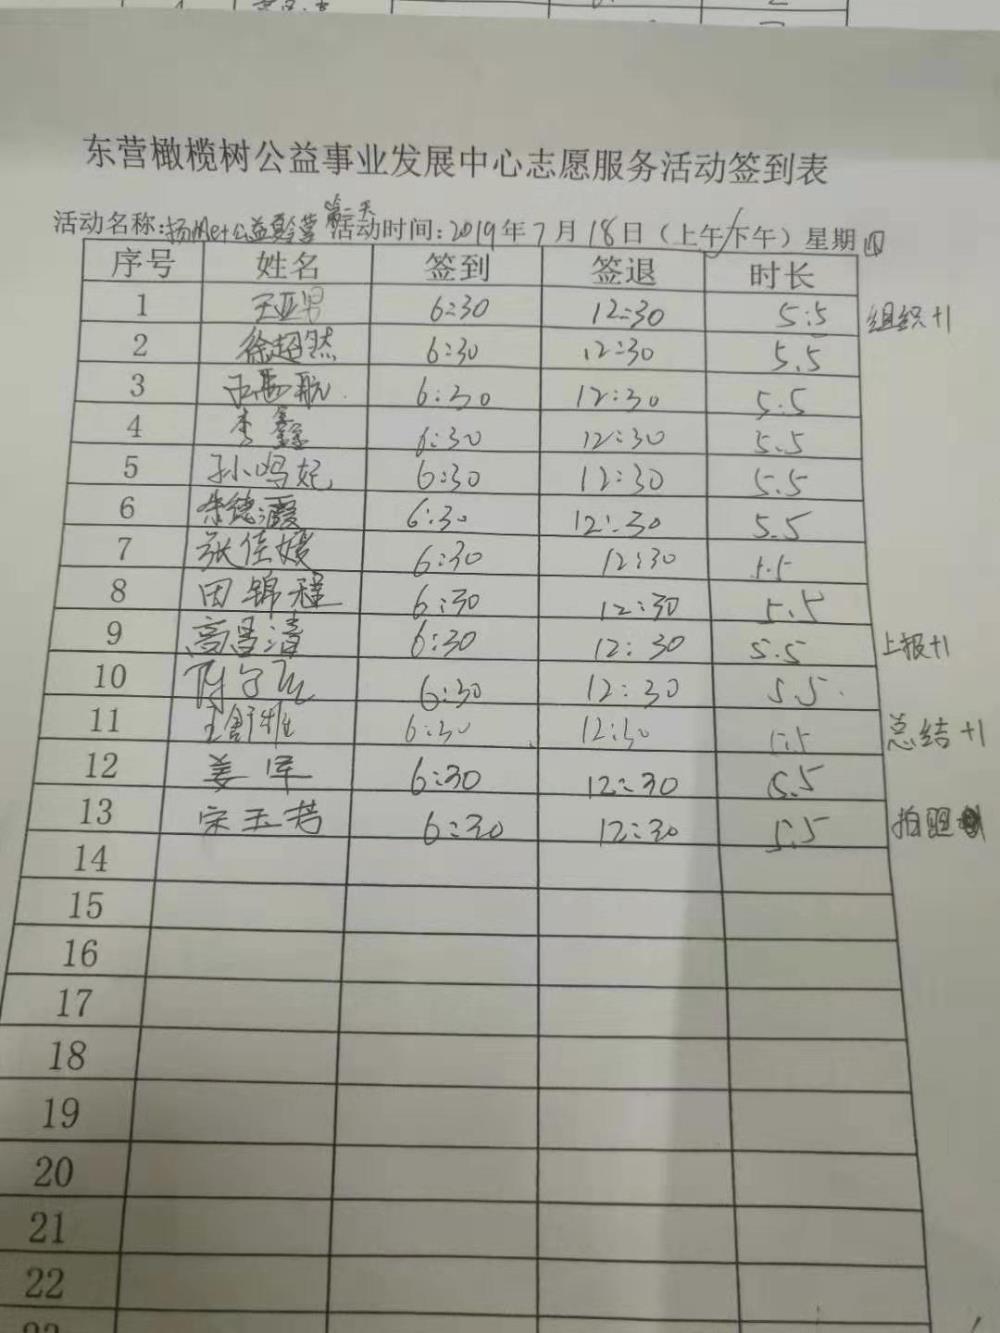 东营橄榄树公益事业发展中心志愿服务活动签到表
第二天
活动名称:扬帆e+公益夏令营 活动时间:2019年7月18日（上午/下午）星期四
序号 姓名 签到 签退 时长
1 王亚男 6:30 12:30 5.5 组织+1
2 徐超然 6:30 12:30 5.5
3 航 6:30 12:30 5.5
4 李鑫 6:30 12:30 5.5
5 孙鸣妃 6:30 12:30 5.5
6 朱德霞 6:30 12:30 5.5
7 张佳媛 6:30 12:30 5.5
8 田锦程 6:30 12:30 5.5
9 高昌清 6:30 12:30 5.5 上报+1
10 6:30 12:30 5.5
11 王舒雅 6:30 12:30 5.5 总结+1
12 姜军 6:30 12:30 5.5
13 宋玉若 6:30 12:30 5.5 拍照
14
15
16
17
18
19
20
21
22
23